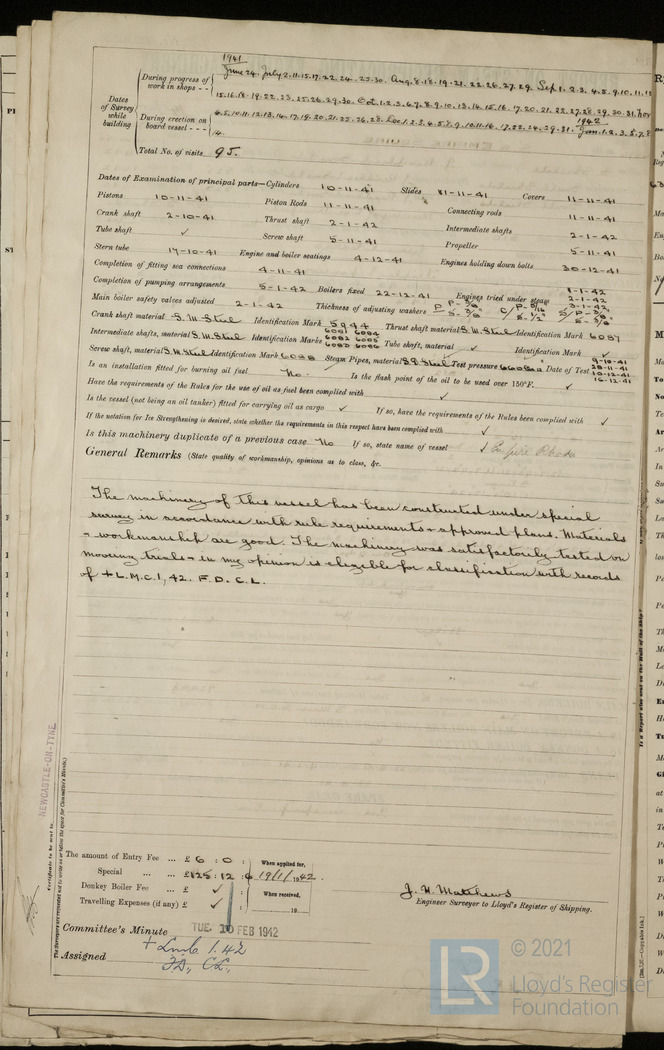 1941
During progress of work in shops - - June 24. July 2.11.15.17.22.24.25.30. Aug. 8.18.19.21.22.26.27.29. Sep 1.2.3.4.5.9.10.11.12
Dates of Survey while building
15.16.18.19.22.23.25.26.29.30. Oct 1.2.3.6.7.8.9.10.13.14.15.16.17.20.21.22.27.28.29.30.31. Nov
During erection on board vessel - - - 4.5.10.11.12.13.14.17.19.20.21.25.26.28. Dec 1.2.4.5.8.9.10.11.16.17.22.24.29.31. 1942 Jan. 1.2.3.5.7.8
14.
Total No. of visits 95.
Dates of Examination of principal parts—Cylinders 10-11-41 Slides 11-11-41 Covers 11-11-41
Pistons 10-11-41 Piston Rods 11-11-41 Connecting rods 11-11-41
Crank shaft 2-10-41 Thrust shaft 2-1-42 Intermediate shafts 2-1-42
Tube shaft ✓ Screw shaft 5-11-41 Propeller 5-11-41
Stern tube 17-10-41 Engine and boiler seatings 4-12-41 Engines holding down bolts 30-12-41
Completion of fitting sea connections 4-11-41
Completion of pumping arrangements 5-1-42 Boilers fixed 22-12-41 Engines tried under steam 1-1-42 2-1-42 3-1-42
Main boiler safety valves adjusted 2-1-42 Thickness of adjusting washers P P-3/8 S-3/8 C/ P-5/16 S-1/2 S/ P-3/8 S-3/8
Crank shaft material S.M. Steel Identification Mark 5944 Thrust shaft material S.M. Steel Identification Mark 6087
Intermediate shafts, material S.M. Steel Identification Marks 6081 6084 6082 6085 6083 6086 Tube shaft, material ✓ Identification Mark ✓
Screw shaft, material S.M. Steel Identification Mark 6088 Steam Pipes, material S.D. Steel Test pressure 660 lbs Date of Test 9-10-41 28-11-41 10-12-41 16-12-41
Is an installation fitted for burning oil fuel No. Is the flash point of the oil to be used over 150°F. ✓
Have the requirements of the Rules for the use of oil as fuel been complied with ✓
Is the vessel (not being an oil tanker) fitted for carrying oil as cargo ✓ If so, have the requirements of the Rules been complied with ✓
If the notation for Ice Strengthening is desired, state whether the requirements in this respect have been complied with ✓
Is this machinery duplicate of a previous case No If so, state name of vessel ✓ Empire Rhodes
General Remarks (State quality of workmanship, opinions as to class, &c.
The machinery of this vessel has been constructed under special
survey in accordance with rule requirements + approved plans. Materials
+ workmanship are good. The machinery was satisfactorily tested on
mooring trials + in my opinion is eligible for classification with records
of + L.M.C. 1, 42. F.D. C.L.
NEWCASTLE-ON-TYNE
Certificate to be sent to
(The Surveyors are requested not to write on or below the space for Committee's Minute.)
The amount of Entry Fee ... £ 6 : 0 : When applied for,
Special ... £125 : 12 : 6 19/1/1942.
Donkey Boiler Fee ... £ ✓ : When received,
Travelling Expenses (if any) £ ✓ : 19
J. H. Matthews
Engineer Surveyor to Lloyd's Register of Shipping.
Committee's Minute TUE. 10 FEB 1942
Assigned + Lmb 1.42
FD, CL,
Is a Report also sent on the Hull of the Ship?
© 2021
Lloyd's Register
Foundation
LR